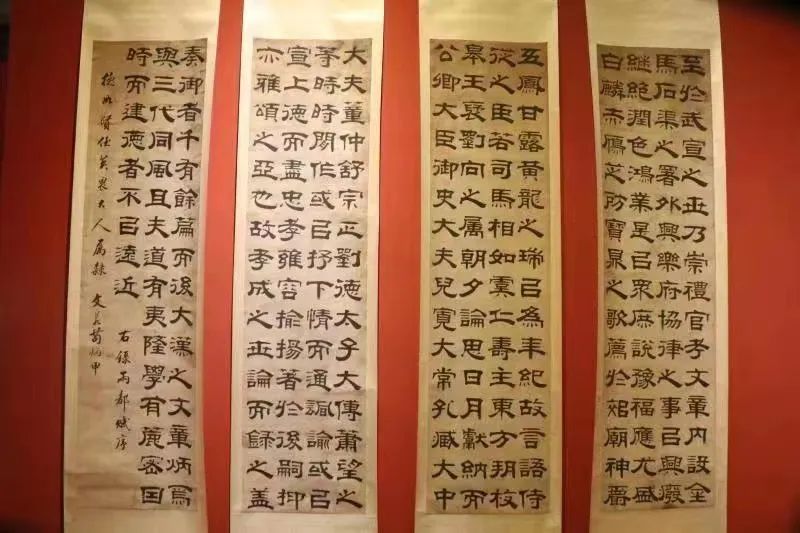 至於武宣之世乃崇禮官考文章內設金
馬石渠之署外興樂府協律之事㠯興廢
繼絕潤色鴻業是㠯眾庶說豫福應尤盛
白麟赤鴈芝防寶鼎之歌薦於郊廟神爵
五鳳甘露黃龍之瑞㠯為年紀故言語侍
從之臣若司馬相如虞丘壽王東方朔枚
皋王襃劉向之屬朝夕論思日月獻納而
公卿大臣御史大夫兒寬大常孔臧大中
大夫董仲舒宗正劉德太子大傅蕭望之
等時時閒作或㠯抒下情而通諷諭或㠯
宣上德而盡忠孝雍容揄揚著於後嗣抑
亦雅頌之亞也故孝成之世論而錄之蓋
奏御者千有餘篇而後大漢之文章炳焉
與三代同風且夫道有夷隆學有麤密因
時而建德者不㠯遠近
右錄兩都賦序
大人屬隸